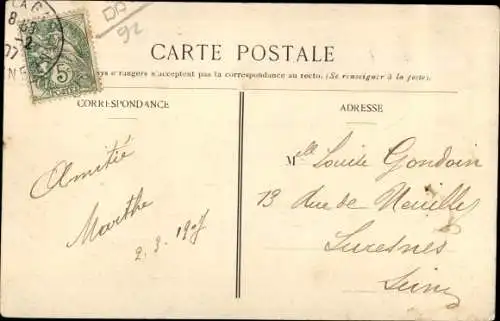 8
2
07
5
DD
92
CARTE POSTALE
pays étrangers n'acceptent pas la correspondance au recto. (Se renseigner à la poste).
CORRESPONDANCE
ADRESSE
Amitié
Marthe
2.3.1907
Melle Louise Gondoin
13 Rue de Neuilly
Suresnes
Seine